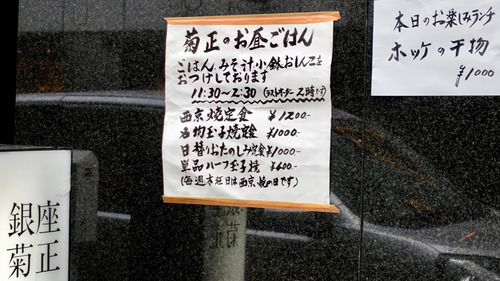 菊正のお昼ごはん
ごはん、みそ汁、小鉢、おしんこを
おつけしております
11:30〜2:30 (ラストオーダー 2時です)
西京焼定食 ¥1200-
名物玉子焼定食 ¥1000-
日替りおたのしみ定食 ¥1000-
単品ハーフ玉子焼 ¥600-
(毎週木曜日は西京焼の日です)
本日のお楽しみランチ
ホッケの干物
¥1000
銀座
菊正